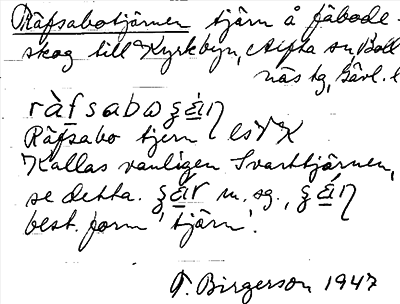 Räfsabotjärnen tjärn å fäbode-
skog till Kyrkbyn, Alfta sn, Boll
näs tg, Gävl. l
ràfsabo
Räfsabo tjern
Kallas vanligen Svarttjärnen,
se detta. m. sg.,
best. form 'tjärn'.
T. Birgerson 1947